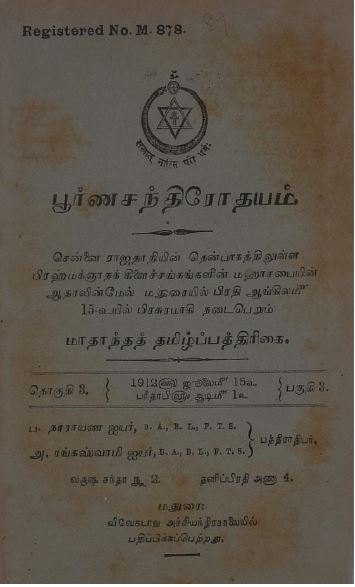 Registered No. M. 878.
ஸத்யாத் நாஸ்தி பரோ தர்ம:
பூர்ணசந்திரோதயம்
சென்னை ராஜதானியின் தென்பாகத்திலுள்ள
பிரஹ்மக்ஞானக் கிளைச்சங்கங்களின் மஹாசபையின்
ஆதரவின்மேல் மதுரையில் பிரதி ஆங்கிலமீ
15-உயில் பிரசுரமாகி நடைபெறும்
மாதாந்தத் தமிழ்ப்பத்திரிகை.
தொகுதி 3. { 1912௵ ஜூலைமீ 15உ } பகுதி 3.
பரீதாபி௵ ஆடிமீ 1உ
ப. நாராயண ஐயர், B. A., B. L., F. T. S.
அ. ரங்கஸ்வாமி ஐயர், B. A., B. L., F. T. S. } பத்திராதிபர்.
வருஷ சந்தா ரூ 2. தனிப்பிரதி அணா 4.
மதுரை:
விவேகபாநு அச்சியந்திரசாலையில்
பதிப்பிக்கப்பெற்றது.